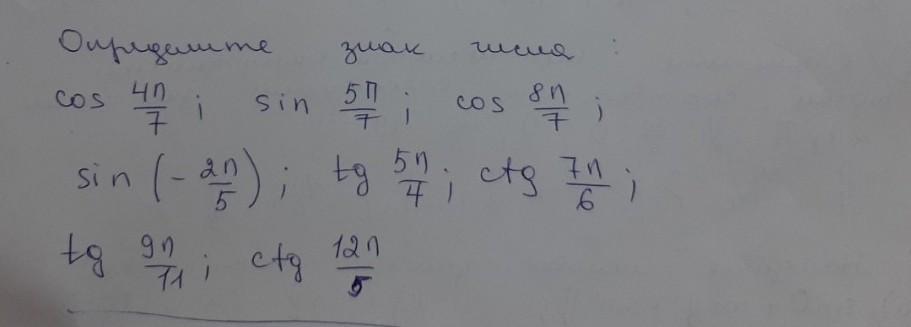 Определите знак числа :
cos 4π/7 ; sin 5π/7 ; cos 8π/7 ;
sin (- 2π/5) ; tg 5π/4 ; ctg 7π/6 ;
tg 9π/11 ; ctg 12π/5